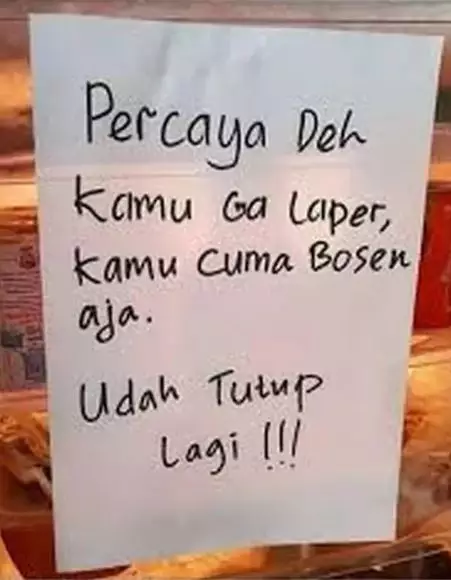 Percaya Deh
Kamu Ga Laper,
Kamu Cuma Bosen
aja.
Udah Tutup
Lagi !!!